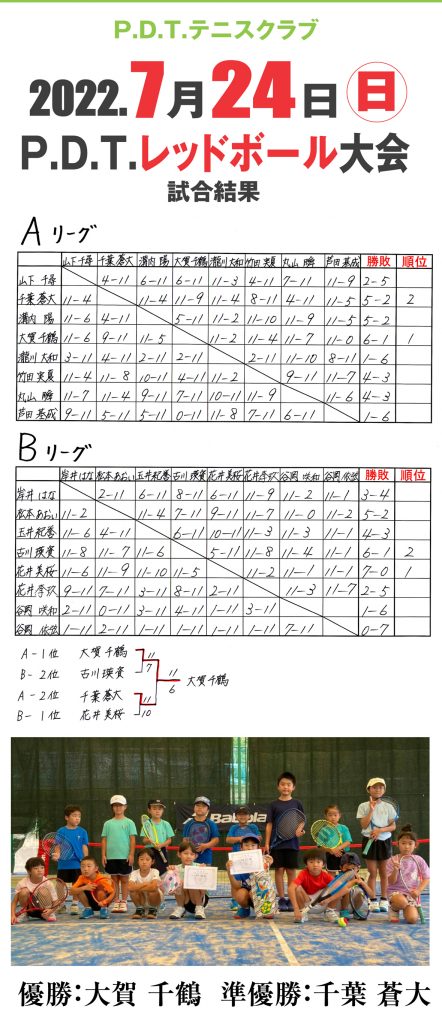 P.D.T.テニスクラブ
2022.7月24日㊐
P.D.T.レッドボール大会
試合結果
Aリーグ
山下千尋 千葉蒼大 溝内陽 大賀千鶴 瀧川大和 竹田実夏 丸山瞬 芦田基成 勝敗 順位
山下 千尋 4-11 6-11 6-11 11-3 4-11 7-11 11-9 2-5
千葉 蒼大 11-4 11-4 11-9 11-4 8-11 4-11 11-5 5-2 2
溝内 陽 11-6 4-11 5-11 11-2 11-10 11-9 11-5 5-2
大賀 千鶴 11-6 9-11 11-5 11-2 11-4 11-7 11-0 6-1 1
瀧川 大和 3-11 4-11 2-11 2-11 2-11 11-10 8-11 1-6
竹田 実夏 11-4 11-8 10-11 4-11 11-2 9-11 11-7 4-3
丸山 瞬 11-7 11-4 9-11 7-11 10-11 11-9 11-6 4-3
芦田 基成 9-11 5-11 5-11 0-11 11-8 7-11 6-11 1-6
Bリーグ
岸井はな 松本あおい 玉井紀善 古川瑛資 花井美桜 花井 谷岡咲和 谷岡 勝敗 順位
岸井 はな 2-11 6-11 8-11 6-11 11-9 11-2 11-1 3-4
松本 あおい 11-2 11-4 7-11 9-11 11-7 11-0 11-2 5-2
玉井 紀善 11-6 4-11 6-11 10-11 11-3 11-3 11-1 4-3
古川 瑛資 11-8 11-7 11-6 5-11 11-8 11-4 11-1 6-1 2
花井 美桜 11-6 11-9 11-10 11-5 11-2 11-1 11-1 7-0 1
花井 9-11 7-11 3-11 8-11 2-11 11-3 11-7 2-5
谷岡 咲和 2-11 0-11 3-11 4-11 1-11 3-11 1-6
谷岡 1-11 2-11 1-11 1-11 1-11 1-11 7-11 0-7
A-1位 大賀千鶴 11
B-2位 古川瑛資 7
11
6
大賀千鶴
A-2位 千葉蒼大 11
B-1位 花井美桜 10
Babolat
優勝:大賀 千鶴 準優勝:千葉 蒼大